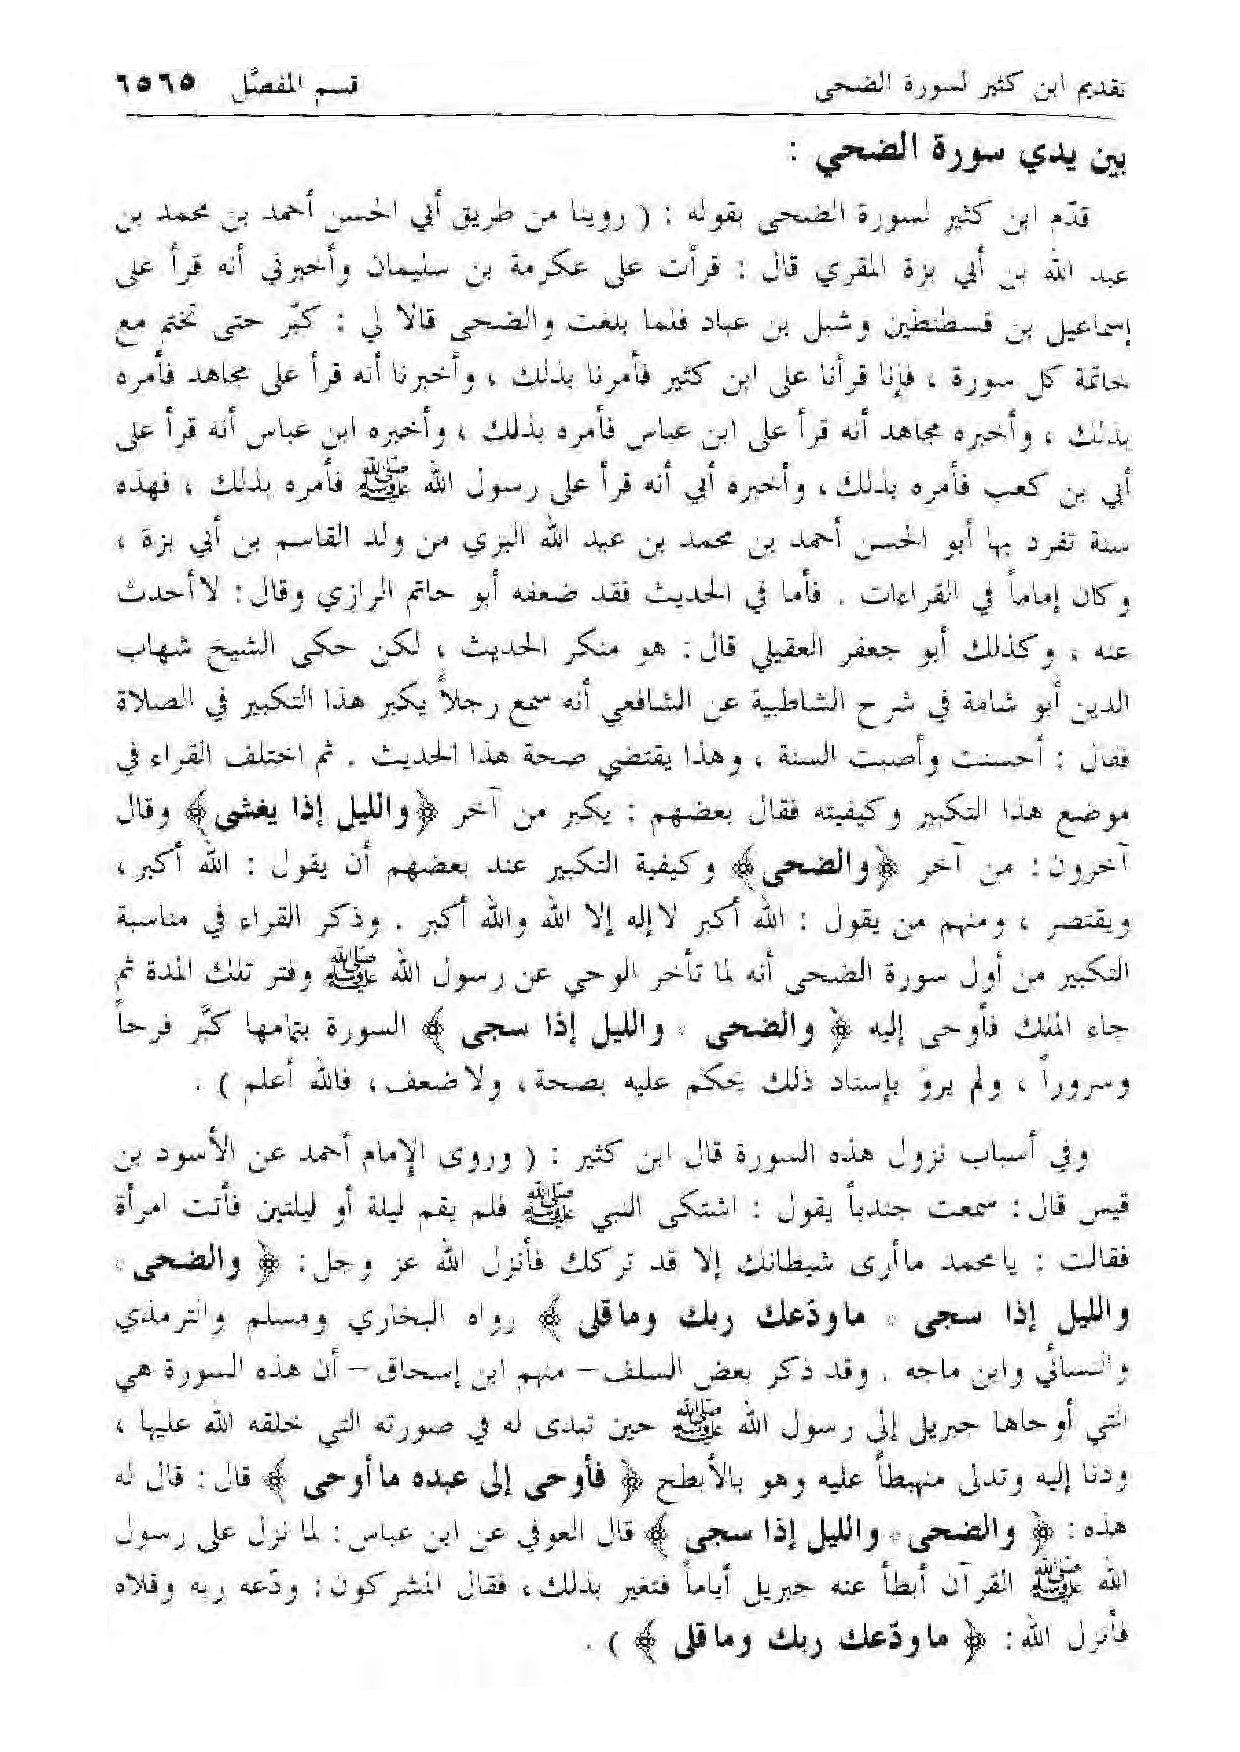 تقديم ابن كثير لسورة الضحى قسم المفصَّل ٦٥٦٥
بين يدي سورة الضحى :
قدّم ابن كثير لسورة الضحى بقوله : ( روينا من طريق أبي الحسن أحمد بن محمد بن
عبد الله بن أبي بزة المقري قال : قرأت على عكرمة بن سليمان وأخبرني أنه قرأ على
إسماعيل بن قسطنطين وشبل بن عباد فلما بلغت والضحى قالا لي : كبّر حتى تختم مع
خاتمة كل سورة ، فإنا قرأنا على ابن كثير فأمرنا بذلك ، وأخبرنا أنه قرأ على مجاهد فأمره
بذلك ، وأخبره مجاهد أنه قرأ على ابن عباس فأمره بذلك ، وأخبره ابن عباس أنه قرأ على
أبي بن كعب فأمره بذلك ، وأخبره أبي أنه قرأ على رسول الله ﷺ فأمره بذلك ، فهذه
سنة تفرد بها أبو الحسن أحمد بن محمد بن عبد الله البزي من ولد القاسم بن أبي بزة ،
وكان إماماً في القراءات . فأما في الحديث فقد ضعفه أبو حاتم الرازي وقال : لا أحدث
عنه ، وكذلك أبو جعفر العقيلي قال : هو منكر الحديث ، لكن حكى الشيخ شهاب
الدين أبو شامة في شرح الشاطبية عن الشافعي أنه سمع رجلاً يكبر هذا التكبير في الصلاة
فقال : أحسنت وأصبت السنة ، وهذا يقتضي صحة هذا الحديث . ثم اختلف القراء في
موضع هذا التكبير وكيفيته فقال بعضهم : يكبر من آخر ﴿والليل إذا يغشى﴾ وقال
آخرون : من آخر ﴿والضحى﴾ وكيفية التكبير عند بعضهم أن يقول : الله أكبر ،
ويقتصر ، ومنهم من يقول : الله أكبر لا إله إلا الله والله أكبر . وذكر القراء في مناسبة
التكبير من أول سورة الضحى أنه لما تأخر الوحي عن رسول الله ﷺ وفتر تلك المدة ثم
جاء الملك فأوحى إليه ﴿ والضحى * والليل إذا سجى ﴾ السورة بتمامها كبَّر فرحاً
وسروراً ، ولم يروَ بإسناد ذلك يحكم عليه بصحة ، ولا ضعف ، فالله أعلم ) .
وفي أسباب نزول هذه السورة قال ابن كثير : ( وروى الإمام أحمد عن الأسود بن
قيس قال : سمعت جندباً يقول : اشتكى النبي ﷺ فلم يقم ليلة أو ليلتين فأتت امرأة
فقالت : يا محمد ما أرى شيطانك إلا قد تركك فأنزل الله عز وجل : ﴿ والضحى *
والليل إذا سجى * ما ودّعك ربك وما قلى ﴾ رواه البخاري ومسلم والترمذي
والنسائي وابن ماجه . وقد ذكر بعض السلف – منهم ابن إسحاق – أن هذه السورة هي
التي أوحاها جبريل إلى رسول الله ﷺ حين تبدى له في صورته التي خلقه الله عليها ،
ودنا إليه وتدلى منهبطاً عليه وهو بالأبطح ﴿ فأوحى إلى عبده ما أوحى ﴾ قال : قال له
هذه : ﴿ والضحى * والليل إذا سجى ﴾ قال العوفي عن ابن عباس : لما نزل على رسول
الله ﷺ القرآن أبطأ عنه جبريل أياماً فتغير بذلك ، فقال المشركون : ودّعه ربه وقلاه
فأنزل الله : ﴿ ما ودّعك ربك وما قلى ﴾ ) .